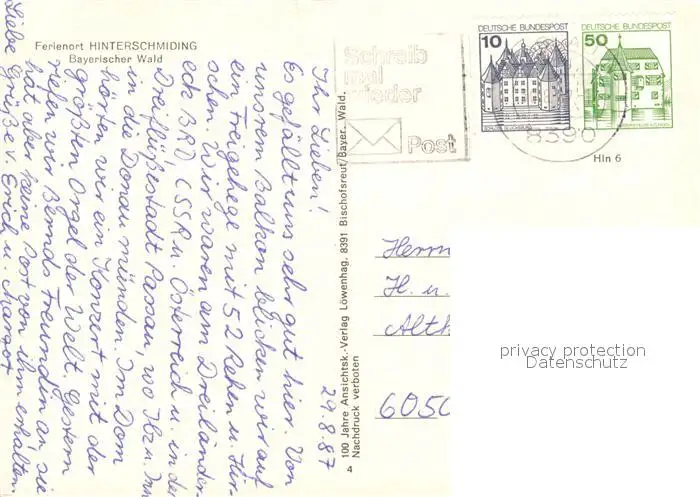 Ferienort HINTERSCHMIDING
Bayerischer Wald
29.8.87
Ihr Lieben!
Es gefällt uns sehr gut hier. Von
unserem Balkon blicken wir auf
ein Freigehege mit 52 Rehen u. Hir-
schen. Wir waren am Dreiländer-
eck BRD, CSSR u. Österreich u. in der
Dreiflüßestadt Passau, wo Ilz u. Inn
in die Donau münden. Im Dom
hörten wir ein Konzert mit der
größten Orgel der Welt. Gestern
riefen wir Bernds Freundin an, sie
hat aber keine Post von ihm erhalten.
Liebe Grüße v. Erich u. Margot
100 Jahre Ansichtsk.-Verlag Löwenhag, 8391 Bischofsreut/Bayer. Wald.
Nachdruck verboten
4
Schreib
mal
wieder
Post
10
DEUTSCHE BUNDESPOST
SCHLOSS GLÜCKSBURG
50
DEUTSCHE BUNDESPOST
8390
Hln 6
Herrn
H. u.
Alth
6050
privacy protection
Datenschutz